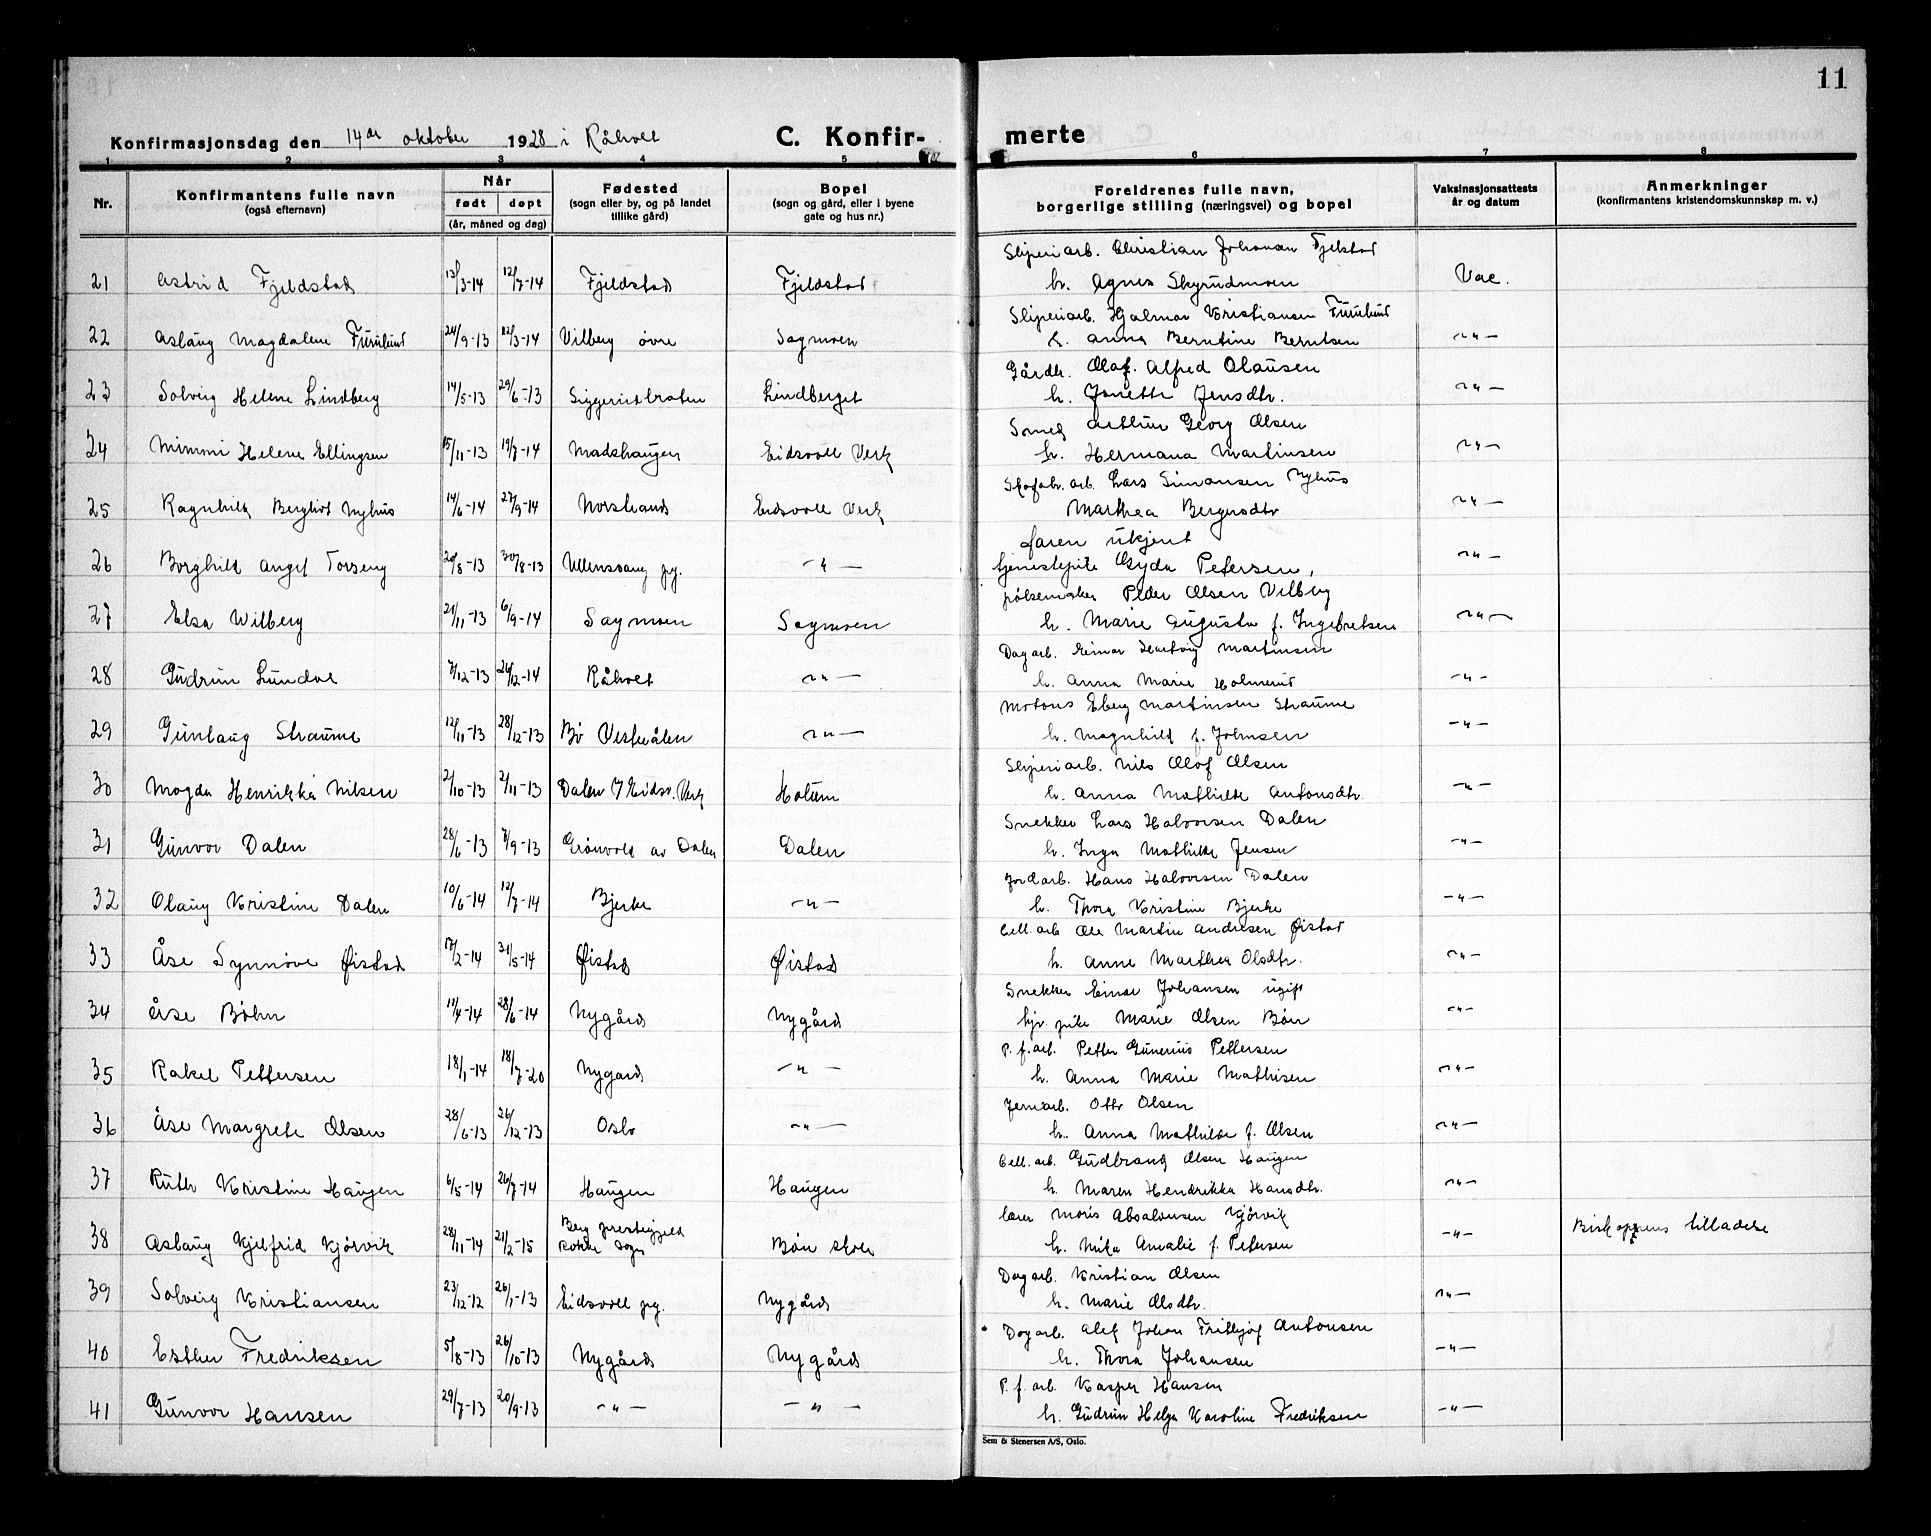 11
Konfirmasjonsdag den 14de oktober 1928 i Råholt C. Konfir- merte
1 2 3 4 5 6 7 8
Nr. Konfirmantens fulle navn (også efternavn) Når født døpt (år, måned og dag) Fødested (sogn eller by, og på landet tillike gård) Bopel (sogn og gård, eller i byene gate og hus nr.) Foreldrenes fulle navn, borgerlige stilling (næringsvei) og bopel Vaksinasjonsattests år og datum Anmerkninger (konfirmantens kristendomskunnskap m. v.)
Sliperiarb. Christian Johansen Fjelstad
21 Astrid Fjeldstad 13/3-14 12/7-14 Fjeldstad Fjeldstad h. Agnes Skyrudmoen Vac.
Sliperiarb. Hjalmar Kristiansen Furulund
22 Aslaug Magdalene Furulund 24/9-13 12/3-14 Vilberg øvre Sagmoen h. Anna Berntine Berntsen -"-
Gårdbr. Olaf Alfred Olausen
23 Solveig Helene Lindberg 14/5-13 29/6-13 Siggerudbraten Lindberget h. Janette Jensdtr. -"-
Smed Arthur Georg Olsen
24 Mimmi Helene Ellingsen 15/11-13 19/7-14 Madshaugen Eidsvoll Verk h. Hermana Martinsen -"-
Stofabr. arb. Lars Simonsen Nyhus
25 Ragnhild Bergliot Nyhus 14/6-14 27/9-14 Norstrand Eidsvoll Verk Marthea Bergersdtr -"-
faren ukjent
26 Borghild Angel Torseng 20/8-13 30/8-13 Ullensvang pg. -"- tjenestepike Gyda Petersen, -"-
pølsemaker Peder Olsen Vilberg
27 Elsa Wilberg 21/11-13 6/9-14 Sagmoen Sagmoen h. Marie Augusta f. Ingebretsen -"-
Dagarb. Einar Hartvig Martinsen
28 Gudrun Lundal 7/12-13 26/12-14 Råholt -"- h. Anna Marie Holmerud -"-
Motons Eberg Martinsen Straume
29 Gunlaug Straume 12/11-13 28/12-13 Bø Vesterålen -"- h. Magnhild f. Johnsen -"-
Sliperiarb. Nils Olof Olsen
30 Magda Henrikka Nilsen 2/10-13 2/11-13 Dalen 7 Eidsv. Verk Holum h. Anna Mathilde Antonsdtr. -"-
Snekker Lars Halvorsen Dalen
31 Gunvor Dalen 28/6-13 7/9-13 Grønvold av Dalen Dalen h. Inga Mathilde Jensen -"-
Jordarb. Hans Halvorsen Dalen
32 Olaug Kristine Dalen 10/6-14 12/7-14 Bjerke -"- h. Thora Kristine Bjerke -"-
Cell. arb Ole Martin Andresen Øistad
33 Åse Synnøve Øistad 17/2-14 31/5-14 Øistad Øistad h. Anne Marthea Olsdtr. -"-
Snekker Einar Johansen ugift
34 Åse Bøhn 11/4-14 28/6-14 Nygård Nygård hjv. pike Marie Olsen Bøn -"-
P. f. arb. Petter Gunerius Pettersen
35 Rakel Pettersen 18/1-14 18/7-20 Nygard -"- h. Anna Marie Mathisen -"-
Jernarb. Otto Olsen
36 Åse Margrete Olsen 28/6-13 26/12-13 Oslo -"- h. Anna Mathilde f. Olsen -"-
Cell. arb. Gudbrand Olsen Haugen
37 Ruth Kristine Haugen 6/5-14 26/7-14 Haugen Haugen h. Maren Hendrikka Hansdtr. -"-
lærer Moris Absalonsen Kjörvik
38 Aslaug Kjelfrid Kjörvik 28/11-14 21/2-15 Berg prestegjeld Rokke sogn Bøn skole h. Mila Amalie f. Petersen -"- Biskoppens tilladelse
Dagarb. Kristian Olsen
39 Solveig Kristiansen 23/12-12 26/1-13 Eidsvoll pg. Nygård h. Marie Olsdtr. -"-
Dagarb. Alef Johan Fritbjof Antonsen
40 Esther Fredriksen 5/8-13 26/10-13 Nygård Nygård h. Thora Johansen -"-
P. f. arb. Kasper Hansen
41 Gunvor Hansen 29/7-13 20/9-13 -"- -"- h. Gudrun Helga Karoline Fredriksen -"-
Sem & Stenersen A/S, Oslo.